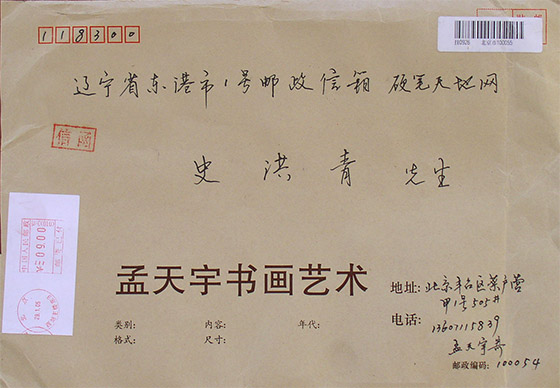 118300
北京市100055
辽宁省东港市1号邮政信箱 硬笔天地网
信函
史洪青 先生
孟天宇书画艺术
类别: 内容: 年代:
格式: 尺寸:
地址: 北京丰台区菜户营
甲1号505#
电话: 13607115839
孟天宇寄
邮政编码: 100054